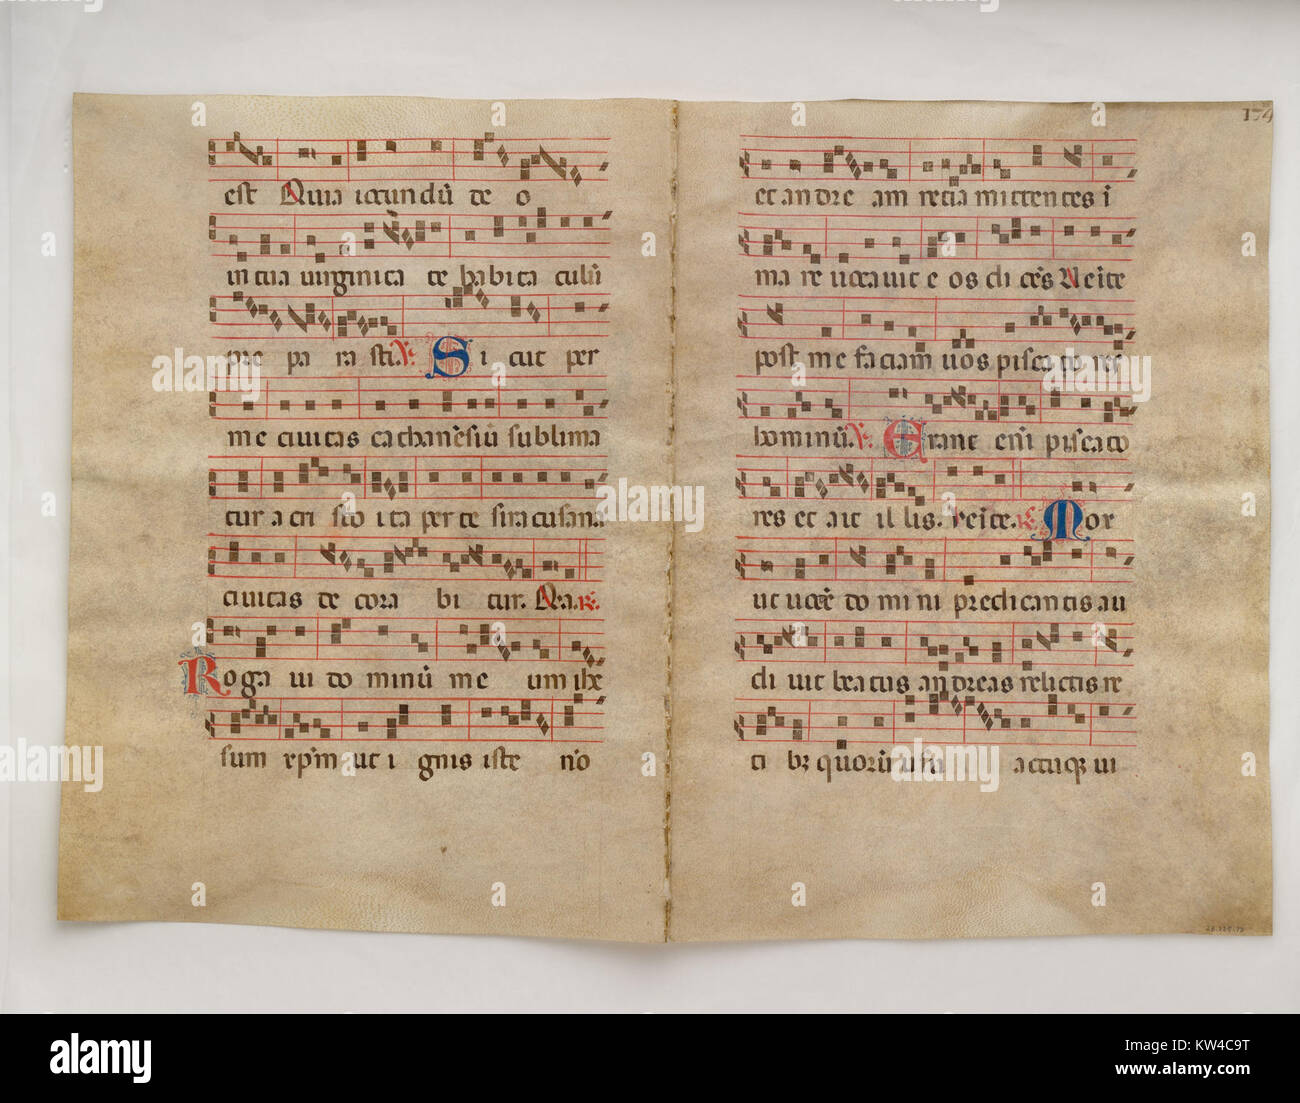 est Quia iocundū de o
in tua uirginita te habita culū
pre pa ra sti. ℣. Si cut per
me ciuitas cathanēsiū sublima
tur a cri sto ita per te siracusana
ciuitas de cora bi tur. Qia. ℟.
Roga ui do minū me um ihe
sum xpm ut i gnis iste nō
174
et andre am retia mittentes i
ma re uocauit e os di cēs Ueīte
post me faciam uos pisca to res
hominū. ℣. Erant eni pisca to
res et ait il lis. Veīte. ℟. Mox
ut uocē do mi ni predicantis au
di uit beatus andreas relictis re
ti bꝫ quorū usu actuqꝫ ui
28.225.73
alamy
Image ID: KW4C9T
www.alamy.com